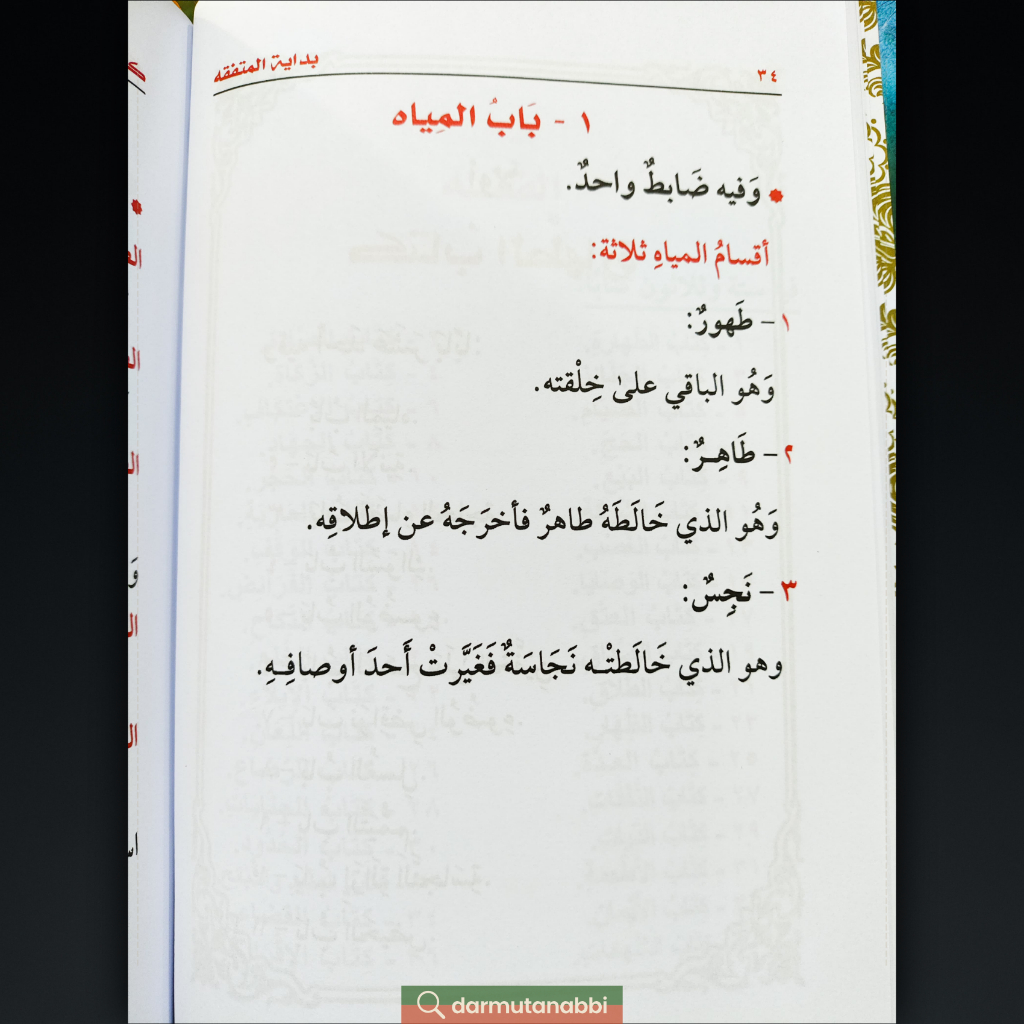 ٣٤
بداية المتفقه
١ - بَابُ المِياه
وَفيه ضَابطٌ واحدٌ.
أقسامُ المياهِ ثلاثة:
١ - طَهورٌ:
وَهُو الباقي علىٰ خِلْقته.
٢ - طَاهِـرٌ:
وَهُو الذي خَالَطَهُ طاهرٌ فأخرَجَهُ عن إطلاقِه.
٣ - نَجِسٌ:
وهو الذي خَالَطتْـه نَجَاسَةٌ فَغَيَّرتْ أَحدَ أوصافِـهِ.
darmutanabbi